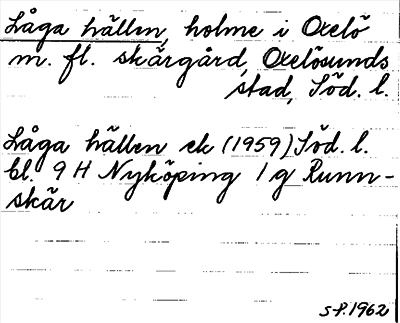 Låga hällen, holme i Oxelö
m. fl. skärgård, Oxelösunds
stad, Söd. l.
Låga hällen ek (1959) Söd. l.
bl. 9 H Nyköping 1 g Runn-
skär
S-P. 1962